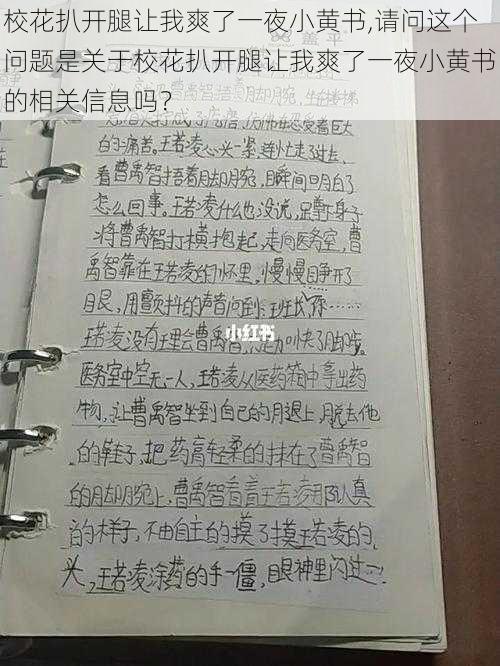 校花扒开腿让我爽了一夜小黄书,请问这个
问题是关于校花扒开腿让我爽了一夜小黄书
的相关信息吗?
的痛苦。王若凌心头一紧,连忙走了过去,
看曹禹智捂着脚腕,瞬间明白了
怎么回事。王若凌什么也没说,蹲下身子
将曹禹智打横抱起,走向医务室,曹
禹智靠在王若凌的怀里,慢慢睁开了
眼,用颤抖的声音问到:班长你……
王若凌没有王理会曹禹智,加快了脚步。
小红书
医务室中空无一人,王若凌从医药箱中拿出药
物,让曹禹智坐到自己的腿上,脱去他
的鞋子,把药膏轻柔的抹在了曹禹智
的脚腕上,曹禹智看着王若凌那认真
的样子,不由自主的摸了摸王若凌的
头,王若凌涂药的手一僵,眼神里闪过……